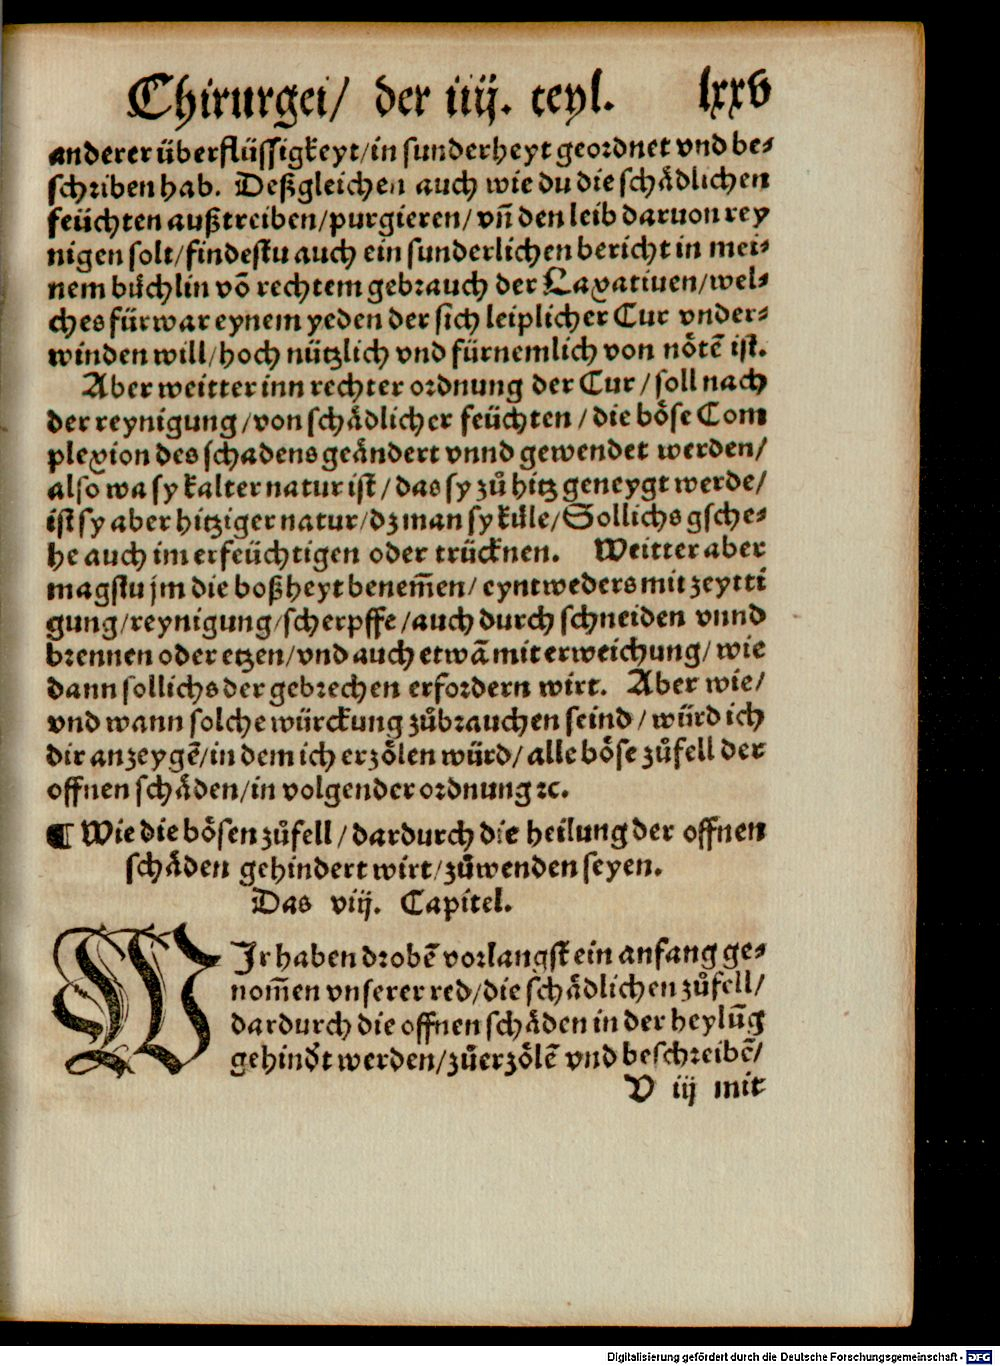 Chirurgei/ der iiij. teyl. lxxv
anderer überflüssigkeyt/in sunderheyt geordnet vnd be-
schriben hab. Deßgleichen auch wie du die schådlichen
feüchten außtreiben/purgieren/ vñ den leib daruon rey
nigen solt/findestu auch ein sunderlichen bericht in mei-
nem bůchlin võ rechtem gebrauch der Laxatiuen/wel-
ches fürwar eynem yeden der sich leiplicher Cur vnder-
winden will/hoch nützlich vnd fürnemlich von nötẽ ist.
Aber weitter inn rechter ordnung der Cur/soll nach
der reynigung/von schådlicher feüchten/die böse Com
plexion des schadens geåndert vnnd gewendet werden/
also wa sy kalter natur ist/das sy zů hitz geneygt werde/
ist sy aber hitziger natur/dz man sy kůle/Sollichs gsche-
he auch im erfeüchtigen oder trücknen. Weitter aber
magstu jm die boßheyt benem̃en/eyntweders mit zeytti
gung/reynigung/scherpffe/auch durch schneiden vnnd
brennen oder etzen/vnd auch etwã mit erweichung/wie
dann sollichs der gebrechen erfordern wirt. Aber wie/
vnd wann solche würckung zůbrauchen seind/würd ich
dir anzeygẽ/in dem ich erzölen würd/alle böse zůfell der
offnen schåden/in volgender ordnung ꝛc.
¶ Wie die bösen zůfell/dardurch die heilung der offnen
schåden gehindert wirt/zůwenden seyen.
Das viij. Capitel.
WJr haben drobẽ vorlangst ein anfang ge-
nom̃en vnserer red/die schådlichen zůfell/
dardurch die offnen schåden in der heylũg
gehindt̃ werden/zůerzölẽ vnd beschreibẽ/
V iij mit
Digitalisierung gefördert durch die Deutsche Forschungsgemeinschaft - DFG